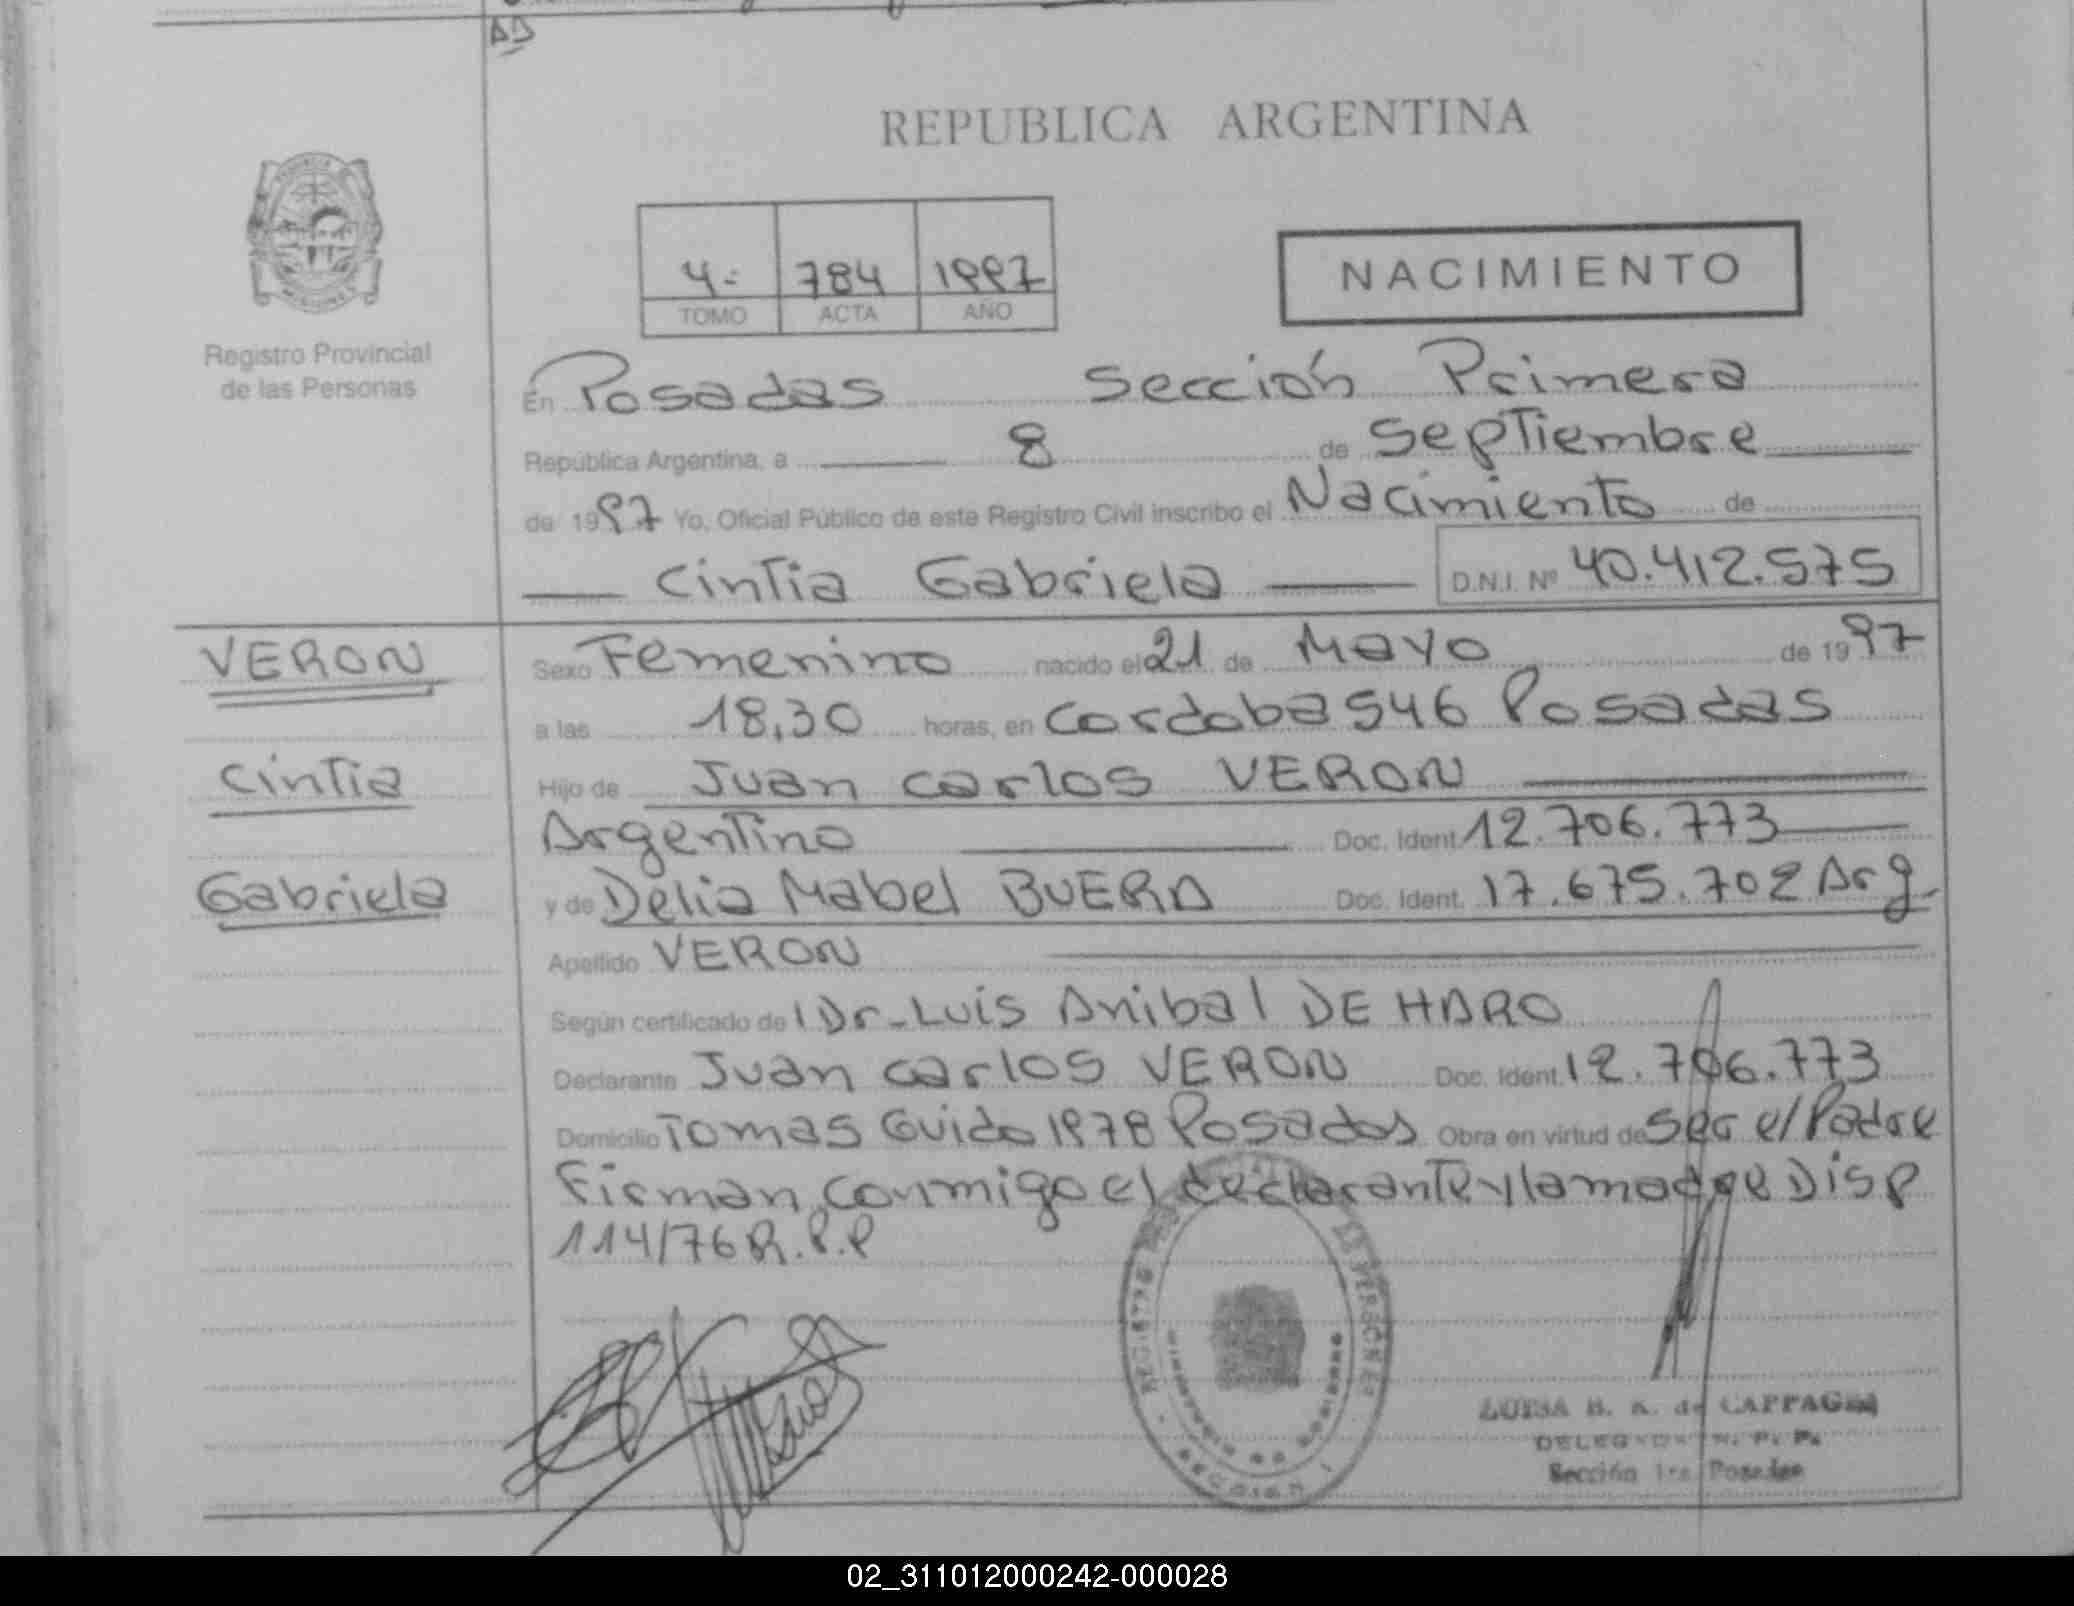 AD
REPUBLICA ARGENTINA
PROVINCIA
MISIONES
Registro Provincial
de las Personas
4.= 784 1997
TOMO ACTA AÑO
NACIMIENTO
En Posadas Sección Primera
República Argentina, a 8 de Septiembre
de 1997 Yo, Oficial Público de este Registro Civil inscribo el Nacimiento de
Cintia Gabriela D.N.I. Nº 40.412.575
VERON
Cintia
Gabriela
Sexo Femenino nacido el 21 de Mayo de 1997
a las 18,30 horas, en Cordoba 546 Posadas
Hijo de Juan Carlos VERON
Argentino Doc. Ident. 12.706.773
y de Delia Mabel BUERA Doc. Ident. 17.675.702 Arg.
Apellido VERON
Según certificado del Dr. Luis Anibal DE HARO
Declarante Juan Carlos VERON Doc. Ident. 12.706.773
Domicilio Tomas Guido 1978 Posadas Obra en virtud de Ser el Padre
Firman conmigo el declarante y la madre Disp
114/76 R.P.P
REGISTRO PERSONAS
SECCION 1
LUISA B. K. de CAPPAGLI
DELEGADA R. P. P.
Sección 1ra. Posadas
02_311012000242-000028